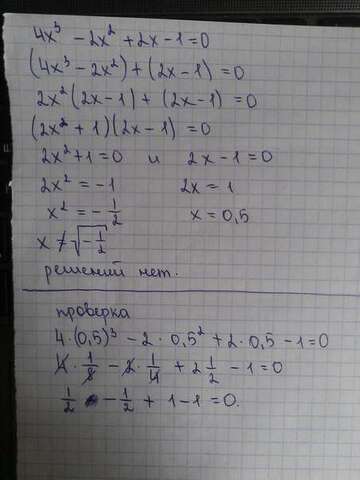 4x³ - 2x² + 2x - 1 = 0
(4x³ - 2x²) + (2x - 1) = 0
2x²(2x - 1) + (2x - 1) = 0
(2x² + 1)(2x - 1) = 0
2x² + 1 = 0 и 2x - 1 = 0
2x² = -1 2x = 1
x² = -1/2 x = 0,5
x ≠ √(-1/2)
решений нет.
проверка
4·(0,5)³ - 2·0,5² + 2·0,5 - 1 = 0
4·1/8 - 2·1/4 + 2 1/2 - 1 = 0
1/2 - 1/2 + 1 - 1 = 0.